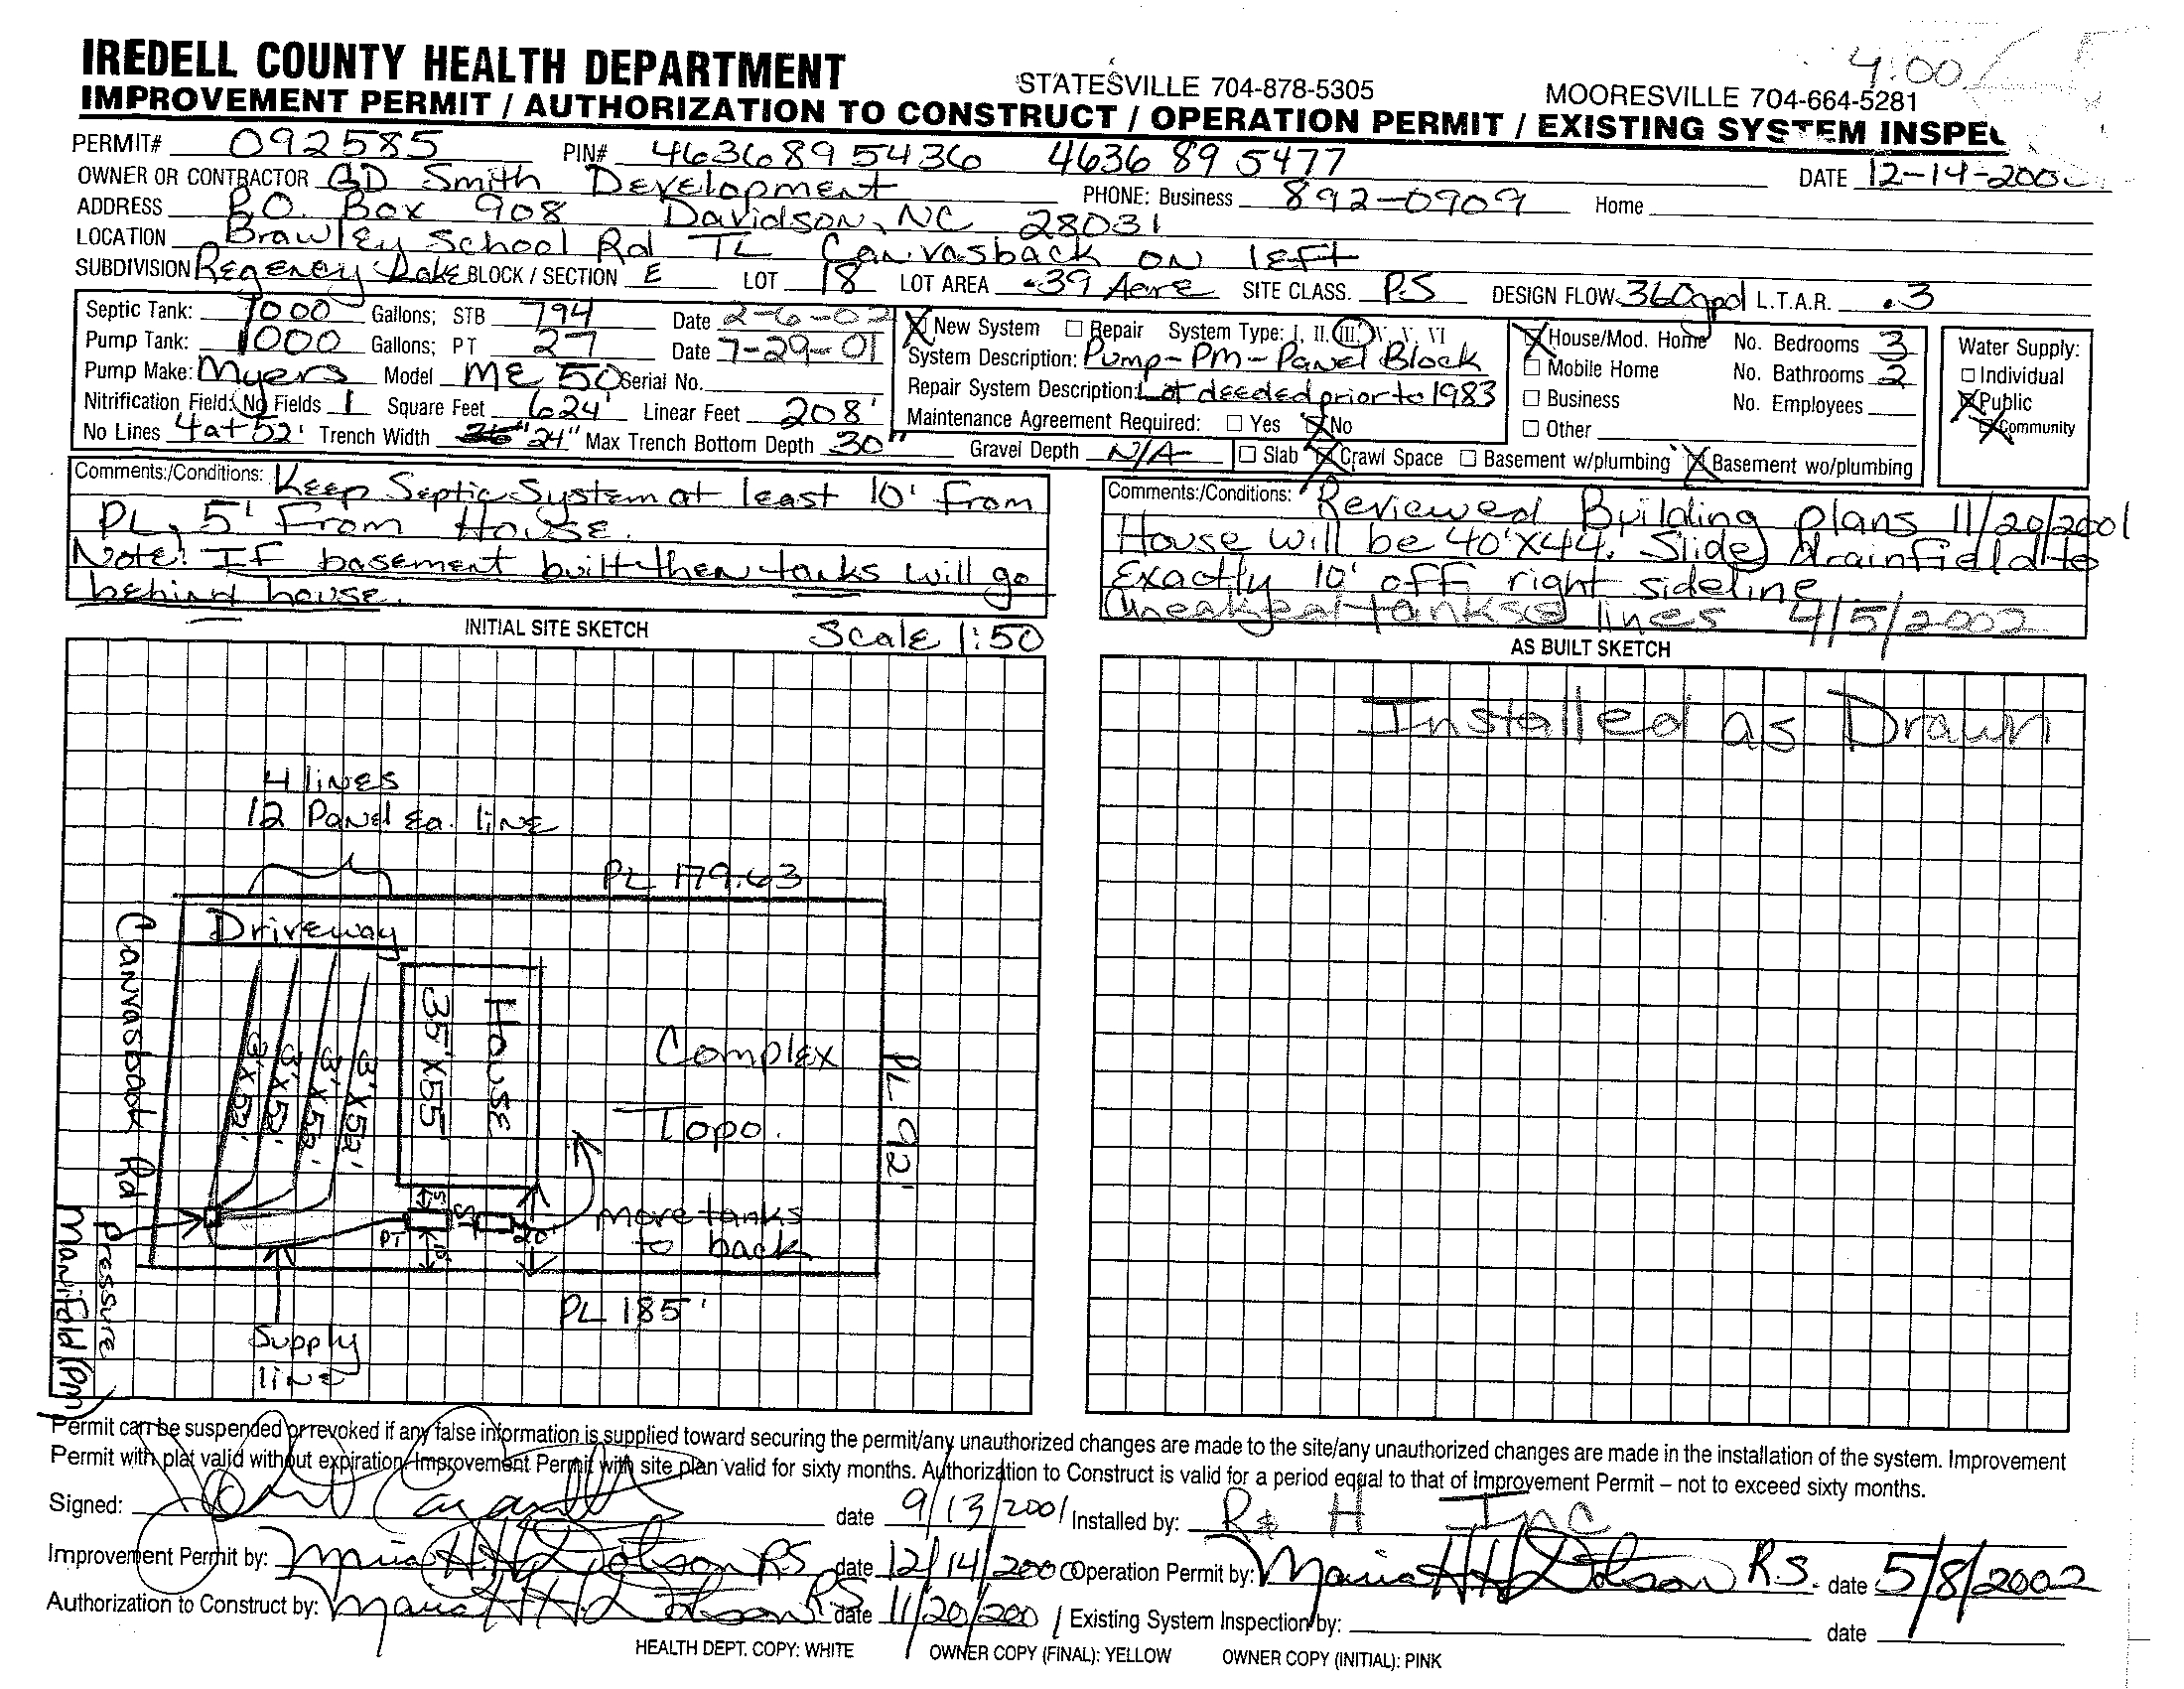 4:00
IREDELL COUNTY HEALTH DEPARTMENT STATESVILLE 704-878-5305 MOORESVILLE 704-664-5281
IMPROVEMENT PERMIT / AUTHORIZATION TO CONSTRUCT / OPERATION PERMIT / EXISTING SYSTEM INSPEC
PERMIT# 092585 PIN# 4636895436 4636 89 5477 DATE 12-14-200
OWNER OR CONTRACTOR GD Smith Development PHONE: Business 892-0909 Home
ADDRESS P.O. Box 908 Davidson, NC 28031
LOCATION Brawley School Rd TL Canvasback on left
SUBDIVISION Regency Lake BLOCK / SECTION E LOT 18 LOT AREA .39 Acre SITE CLASS. P.S DESIGN FLOW 360gpd L.T.A.R. .3
Septic Tank: 1000 Gallons; STB 794 Date 2-6-02
Pump Tank: 1000 Gallons; PT 27 Date 7-29-01
Pump Make: Myers Model ME 50 Serial No.
Nitrification Field: No Fields 1 Square Feet 624' Linear Feet 208'
No Lines 4 at 52' Trench Width 36" 24" Max Trench Bottom Depth 30" Gravel Depth N/A
X New System Repair System Type: I, II, III, IV, V, VI
System Description: Pump-PM-Panel Block
Repair System Description: Lot deeded prior to 1983
Maintenance Agreement Required: Yes X No
Slab X Crawl Space Basement w/plumbing X Basement wo/plumbing
X House/Mod. Home No. Bedrooms 3
Mobile Home No. Bathrooms 2
Business No. Employees
Other
Water Supply:
Individual
X Public
X Community
Comments:/Conditions: Keep Septic System at least 10' from
PL, 5' From House.
Note! If basement built then tanks will go
behind house.
Comments:/Conditions: Reviewed Building plans 11/20/2001
House will be 40'X44'. Slide drainfield to
Exactly 10' off right sideline
tanks & lines 4/5/2002
INITIAL SITE SKETCH Scale 1:50
AS BUILT SKETCH
Installed as Drawn
4 lines
12 Panel Ea. line
PL 179.63
Driveway
Canvasback Rd
3'X52'
3'X52'
3'X52'
3'X52'
House
35'X55'
Complex
Topo.
PL 92'
5'
ST
PT
10'
20'
move tanks
to back
PL 185'
Pressure
Manifold (Pm)
Supply
line
Permit can be suspended or revoked if any false information is supplied toward securing the permit/any unauthorized changes are made to the site/any unauthorized changes are made in the installation of the system. Improvement
Permit with plat valid without expiration. Improvement Permit with site plan valid for sixty months. Authorization to Construct is valid for a period equal to that of Improvement Permit – not to exceed sixty months.
Signed: date 9/13/2001 Installed by: R & H Inc
Improvement Permit by: Maria H. Dotson R.S. date 12/14/2000 Operation Permit by: Maria H. Dotson R.S. date 5/8/2002
Authorization to Construct by: Maria H. Dotson R.S. date 11/20/2001 Existing System Inspection by: date
HEALTH DEPT. COPY: WHITE OWNER COPY (FINAL): YELLOW OWNER COPY (INITIAL): PINK